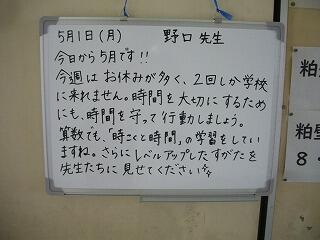 5月1日(月) 野口 先生
今日から5月です!!
今週はお休みが多く、2回しか学校
に来れません。時間を大切にするため
にも、時間を守って行動しましょう。
算数でも、「時こくと時間」の学習をしてい
ますね。さらにレベルアップしたすがたを
先生たちに見せてください
粕
粕壁
8.